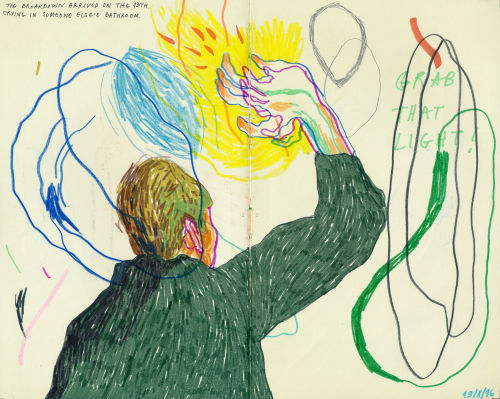 THE BREAKDOWN ARRIVED ON THE 13TH,
CRYING IN SOMEONE ELSE'S BATHROOM.
GRAB
THAT
LIGHT!
19/8/16